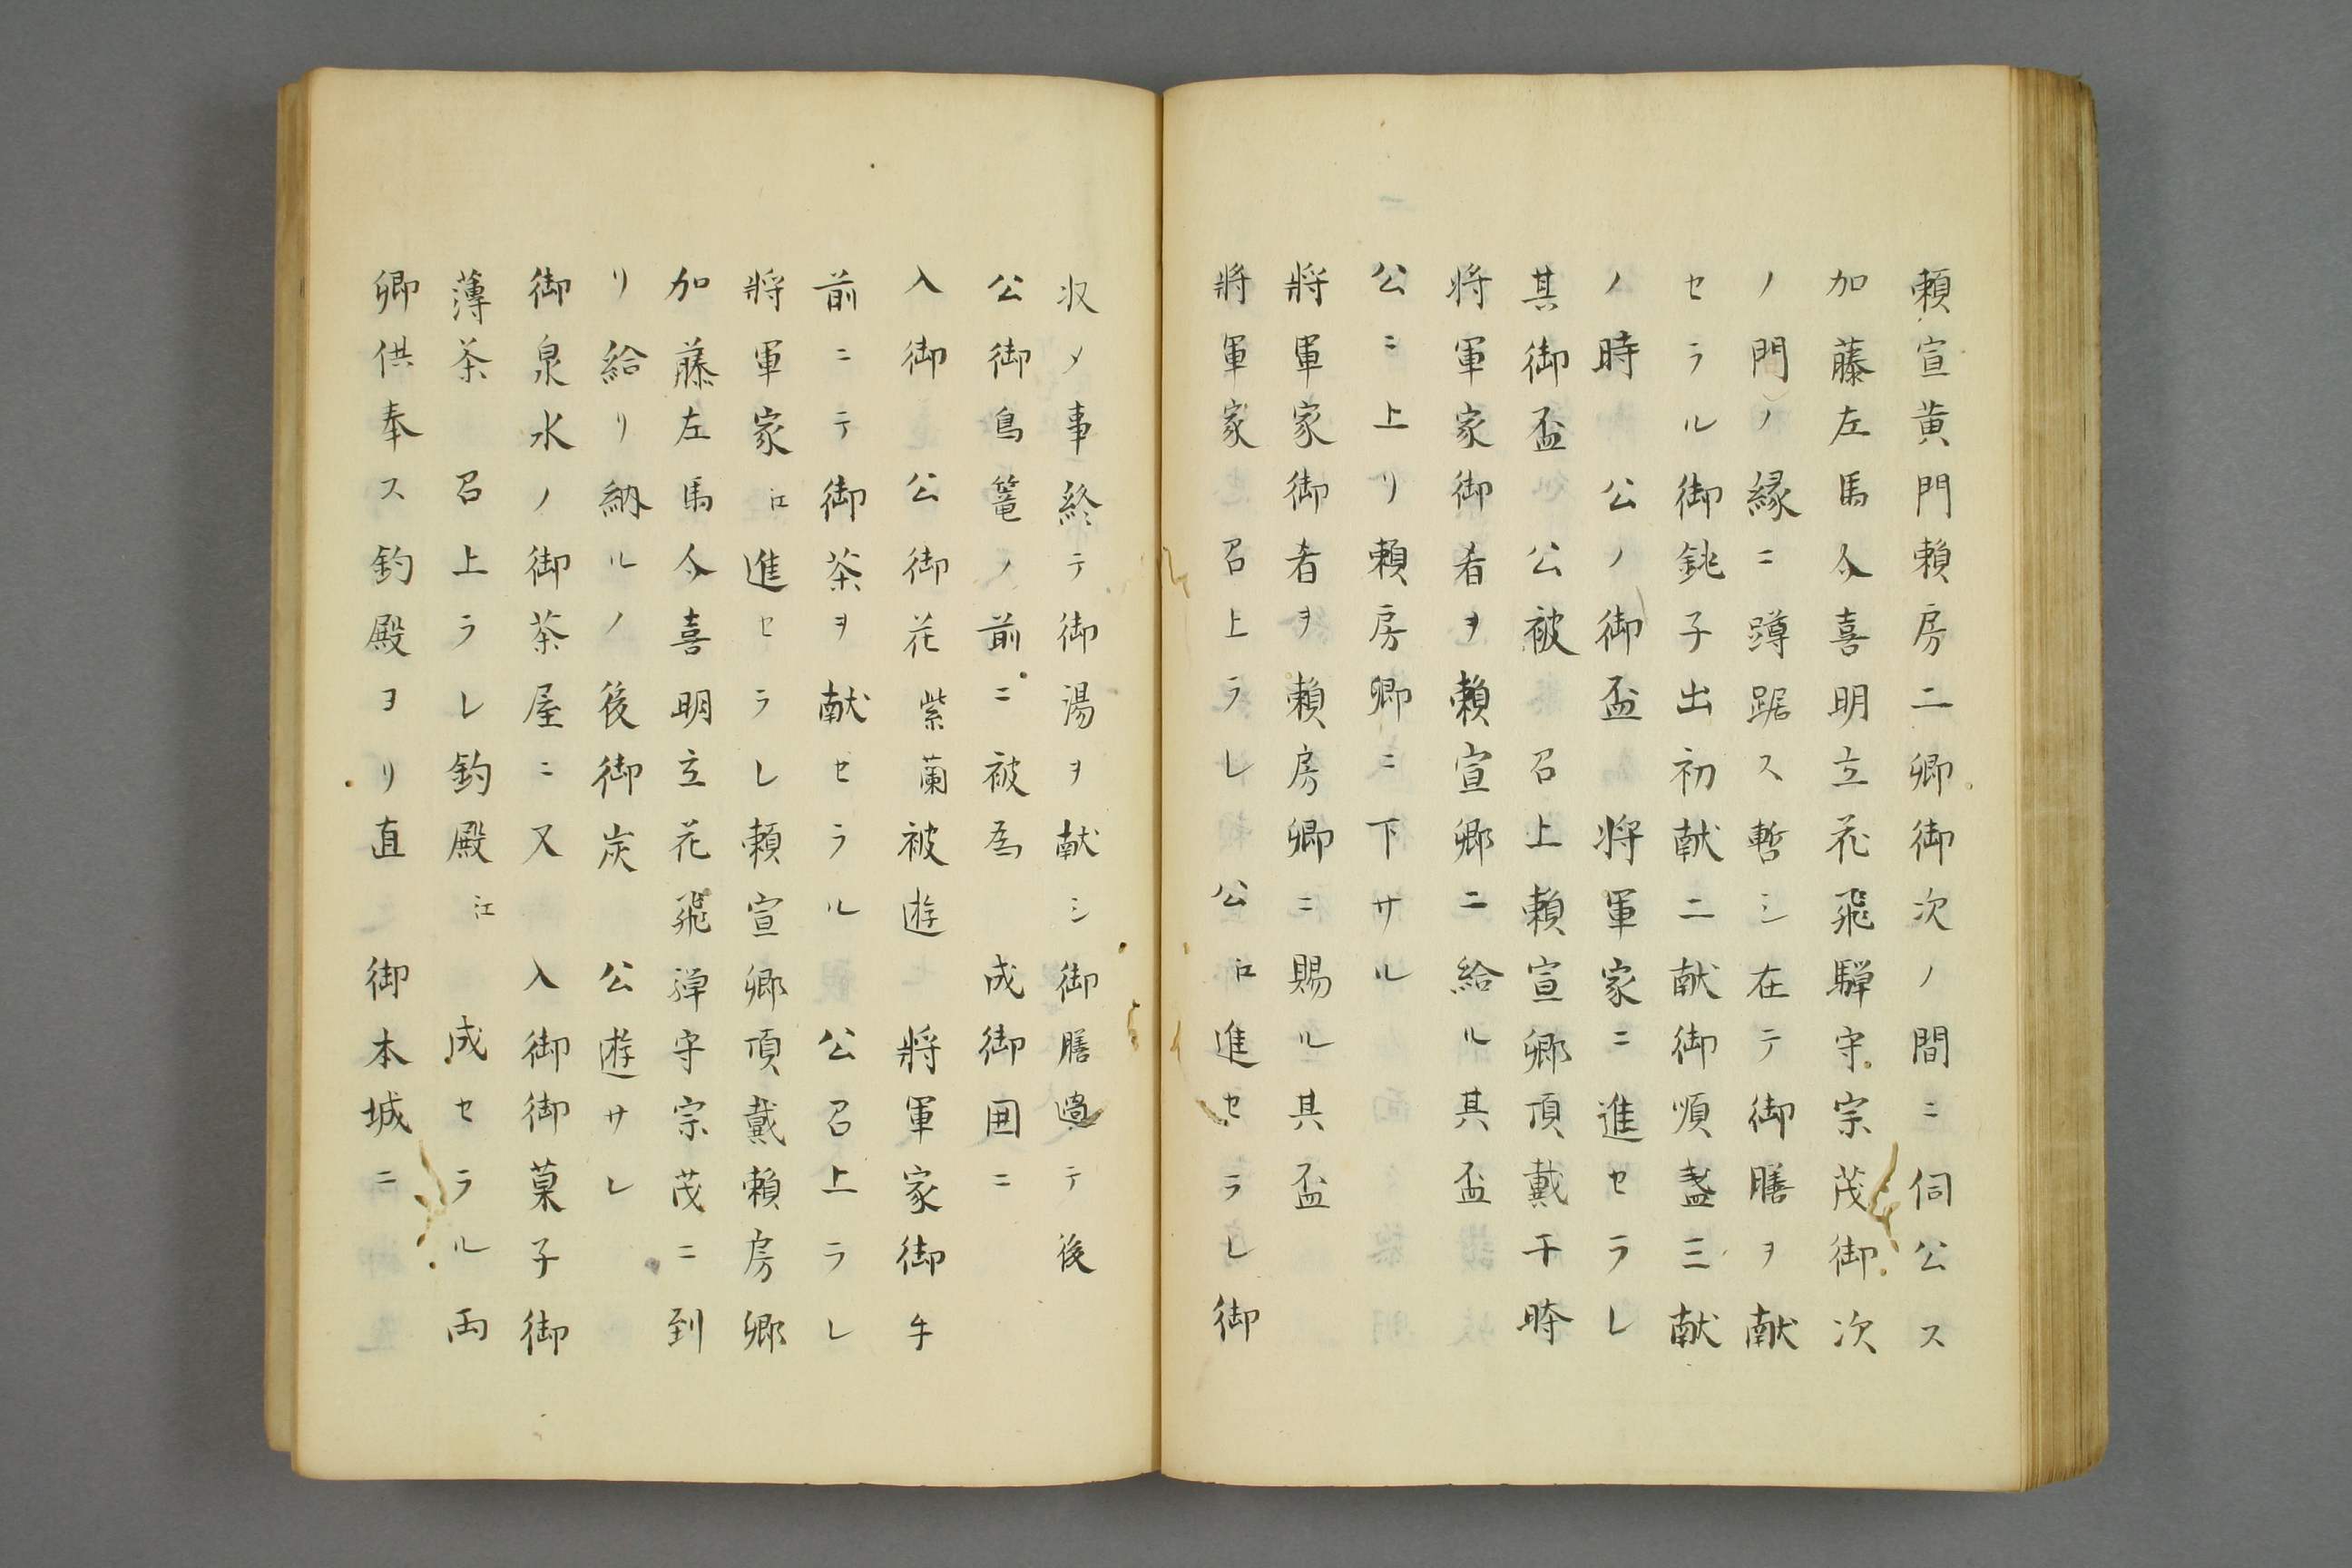 頼宣黄門頼房二卿御次ノ間ニ伺公ス
加藤左馬介喜明立花飛騨守宗茂御次
ノ門ノ縁ニ蹲踞ス暫シ在テ御膳ヲ献
セラル御銚子出初献二献御順盞三献
ノ時公ノ御盃将軍家ニ進セラレ
其御盃公被召上頼宣卿頂戴于時
将軍家御肴ヲ頼宣卿ニ給ル其盃
公ニ上リ頼房卿ニ下サル
将軍家御肴ヲ頼房卿ニ賜ル其盃
将軍家召上ラレ公江進セラレ御
収メ事終テ御湯ヲ献シ御膳過テ後
公御鳥篭ノ前ニ被為成御囲ニ
入御公御花紫蘭被遊将軍家御手
前ニテ御茶ヲ献セラル公召上ラレ
将軍家江進セラレ頼宣卿頂戴頼房卿
加藤左馬介喜明立花飛弾守宗茂ニ到
リ給リ納ルノ後御炭公遊サレ
御泉水ノ御茶屋ニ又入御御菓子御
薄茶召上ラレ釣殿江成セラル両
卿供奉ス釣殿ヨリ直御本城ニ